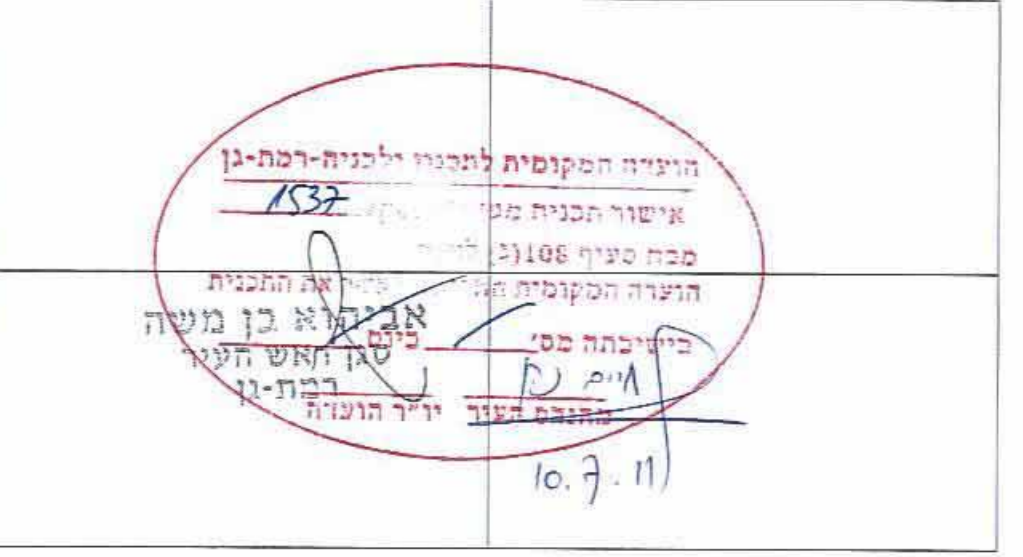 הועדה המקומית לתכנון ולבניה-רמת-גן
אישור תכנית 1537
מכח סעיף 108(ג)
הועדה המקומית את התכנית
בישיבתה מס' ביום
אביהוא בן משה
סגן ראש העיר
רמת-גן
מהנדס העיר יו"ר הועדה
10.7.11